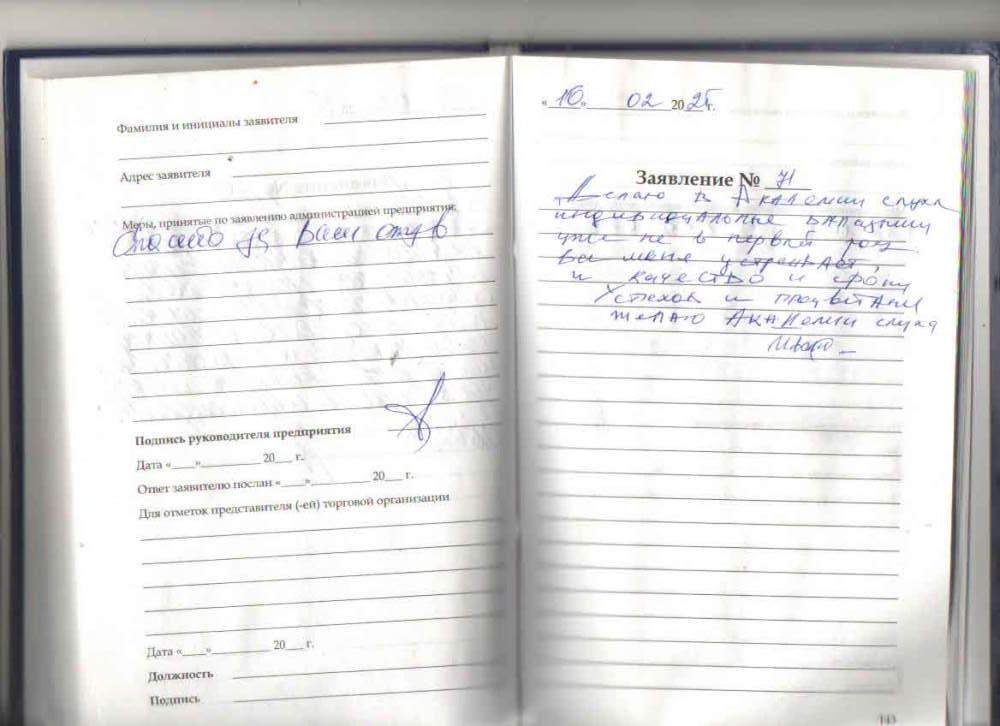 Фамилия и инициалы заявителя
Адрес заявителя
Меры, принятые по заявлению администрацией предприятия:
Спасибо за Ваш отзыв
Подпись руководителя предприятия
Дата «____»__________ 20___ г.
Ответ заявителю послан «____»__________ 20___ г.
Для отметок представителя (-ей) торговой организации
Дата «____»__________ 20___ г.
Должность
Подпись
«10» 02 2025г.
Заявление № 71
Делаю в Академии слуха
индивидуальные вкладыши
уже не в первый раз
Все меня устраивает,
и качество и сроки
Успехов и процветания
желаю Академии слуха
143